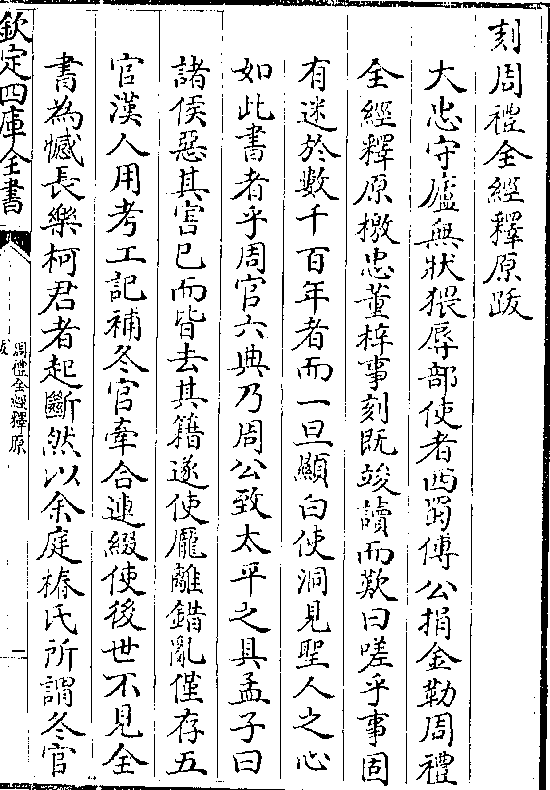 刻周禮全經釋原跋
大忠守廬無狀猥辱部使者西蜀傅公捐金勒周禮
全經釋原檄忠董梓事刻既竣讀而歎曰嗟乎事固
有迷於數千百年者而一旦顯白使洞見聖人之心
如此書者乎周官六典乃周公致太平之具孟子曰
諸侯惡其害已而皆去其籍遂使厖離錯亂僅存五
官漢人用考工記補冬官牽合連綴使後世不見全
書為憾長樂柯君者起斷然以余庭椿氏所謂冬官
欽定四庫全書
周禮全經釋原
跋
一